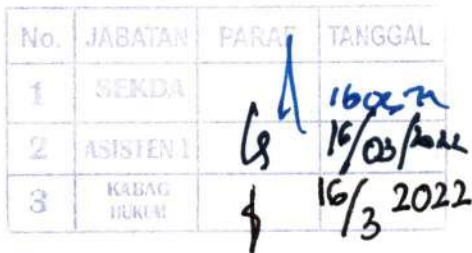 No. JABATAN PARAF TANGGAL
1 SEKDA
2 ASISTEN 1 16/03/2022
3 KABAG HUKUM 16/3 2022